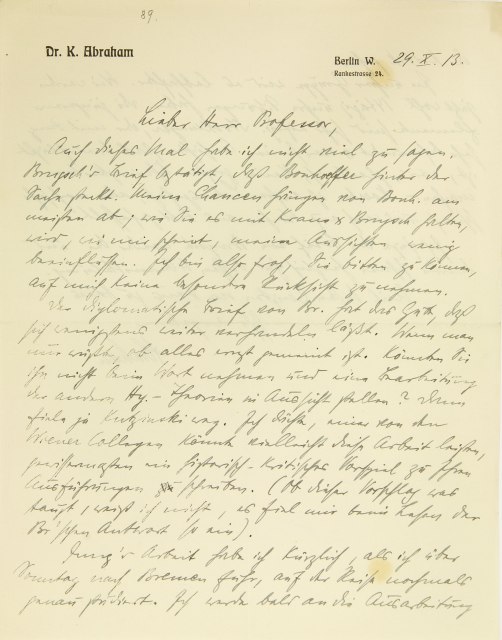 89.
Dr. K. Abraham
Berlin W. 29. X. 13.
Rankestrasse 24.
Lieber Herr Professor,
Auch dieses Mal habe ich nicht viel zu sagen.
Brugsch's Brief bestätigt, daß Bonhoeffer hinter der
Sache steckt. Meine Chancen hängen von Bonh. am
meisten ab; wie Sie es mit Kraus & Brugsch halten,
wird, wie mir scheint, meine Aussichten wenig
beeinflussen. Ich bin also froh, Sie bitten zu können,
auf mich keine besondere Rücksicht zu nehmen.
Der diplomatische Brief von Br. hat das Gute, daß
sich wenigstens weiter verhandeln läßt. Wenn man
nur wüßte, ob alles ernst gemeint ist. Könnten Sie
ihn nicht beim Wort nehmen und eine Bearbeitung
der anderen Hy.-Theorien in Aussicht stellen? Dann
fiele ja Kutzinski weg. Ich dächte, einer von den
Wiener Collegen könnte vielleicht diese Arbeit leisten,
gewissermaßen ein historisch-kritisches Vorspiel zu Ihren
Ausführungen schreiben. (Ob dieser Vorschlag was
taugt, weiß ich nicht, es fiel mir beim Lesen der
Br'schen Antwort so ein).
Jung's Arbeit habe ich kürzlich, als ich über
Sonntag nach Bremen fuhr, auf der Reise nochmals
genau studiert. Ich werde bald an die Ausarbeitung